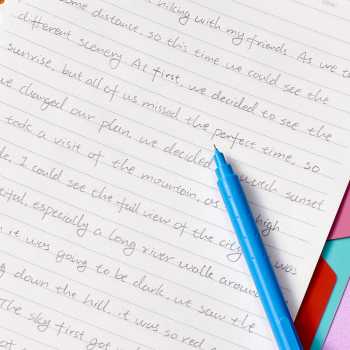 hiking with my friends. As we t
ome distance, so this time we could see the
different scenery. At first, we decided to see the
sunrise, but all of us missed the perfect time, so
we changed our plan, we decided watch sunset
took a visit of the mountain, as high
le, I could see the full view of the city was
tiful, especially a long river walk around
it was going to be dark, we saw the
g down the hill, it was so red
The sky first got